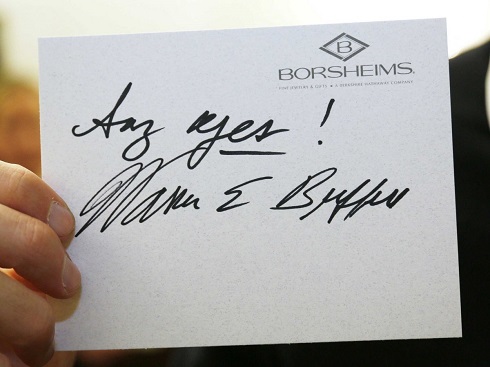 B
BORSHEIMS.
FINE JEWELRY & GIFTS • A BERKSHIRE HATHAWAY COMPANY
Say yes!
Warren E Buffett